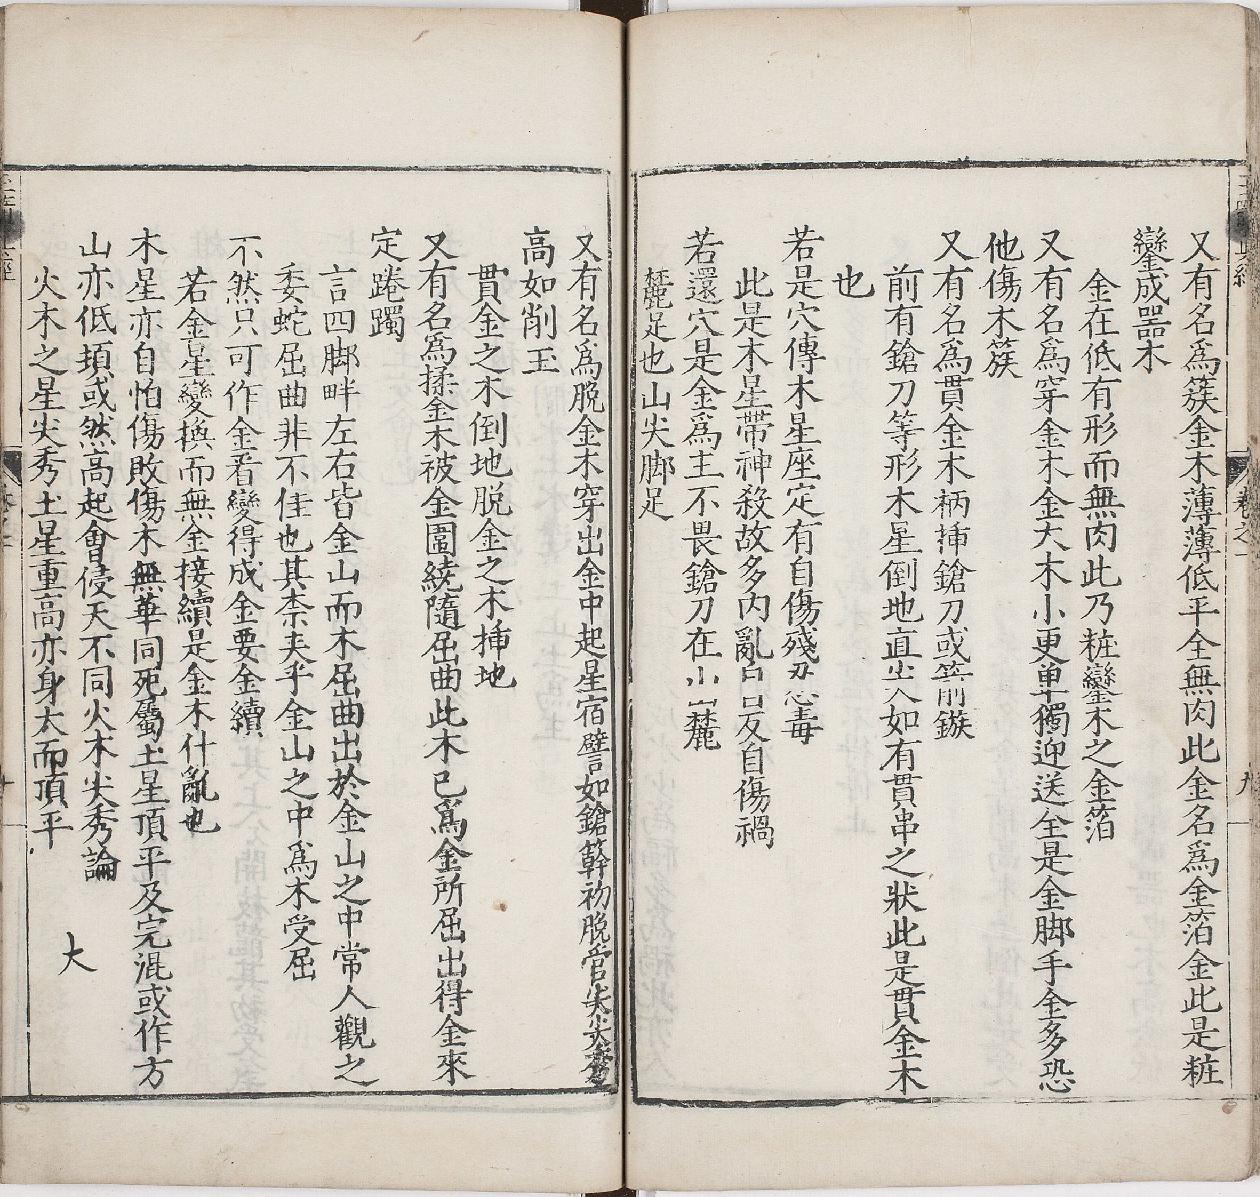 又有名爲簇金木薄薄低平全無肉此金名爲金箔金此是粧
鑾成器木
金在低有形而無肉此乃粧鑾木之金箔
又有名爲穿金木金大木小更單獨迎送全是金脚手金多恐
他傷木簇
又有名爲貫金木柄揷鎗刀或箭鏃
前有鎗刀等形木星倒地直尖如有貫串之狀此是貫金木
也
若是穴傳木星座定有自傷殘忍毒
此是木星帶神殺故多内亂口反自傷禍
若還穴是金爲主不畏鎗刀在山麓
麓足也山尖脚足
又有名爲脫金木穿出金中起星宿譬如鎗簳初脫管尖尖秀
高如削玉
貫金之木倒地脫金之木揷地
又有名爲揉金木被金圍繞隨屈曲此木已爲金所屈出得金來
定踡躅
言四脚畔左右皆金山而木屈曲出於金山之中常人觀之
委蛇屈曲非不佳也其柰夾乎金山之中爲木受屈
不然只可作金看變得成金要金續
若金星變換而無金接續是金木什亂也
木星亦自怕傷敗傷木無華同死屬土星頂平及完混或作方
山亦低頭或然高起會侵天不同火木尖秀論
火木之星尖秀土星重高亦身太而頂平
大
卷之一
九